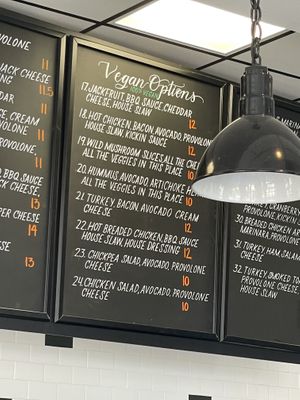 POLONE
11
JACK CHEESE
11.5
DAR
11
E, CREAM
11
PROVOLONE
11
PROVOLONE,
11
BBQ SAUCE,
JACK CHEESE,
13
PER CHEESE
14
13
Vegan Options
100% VEGAN
17. JACKFRUIT, BBQ SAUCE, CHEDDAR
CHEESE, HOUSE SLAW
12
18. HOT CHICKEN, BACON, AVOCADO, PROVOLONE,
HOUSE SLAW, KICKIN SAUCE
12
19. WILD MUSHROOM, SLICES ALL THE CHEESE
ALL THE VEGGIES IN THIS PLACE
10
20. HUMMUS, AVOCADO, ARTICHOKE HEARTS
ALL THE VEGGIES IN THIS PLACE
10
21. TURKEY, BACON, AVOCADO, CREAM
CHEESE
12
22. HOT BREADED CHICKEN, BBQ SAUCE
HOUSE SLAW, HOUSE DRESSING
12
23. CHICKPEA SALAD, AVOCADO, PROVOLONE
CHEESE
10
24. CHICKEN SALAD, AVOCADO, PROVOLONE
CHEESE
10
PROVOLONE, KICKIN
30. BREADED CHICKEN
MARINARA, PROVOLONE
31. TURKEY, HAM, SALAMI
CHEESE
32. TURKEY, SMOKED
PROVOLONE CHEESE
HOUSE SLAW